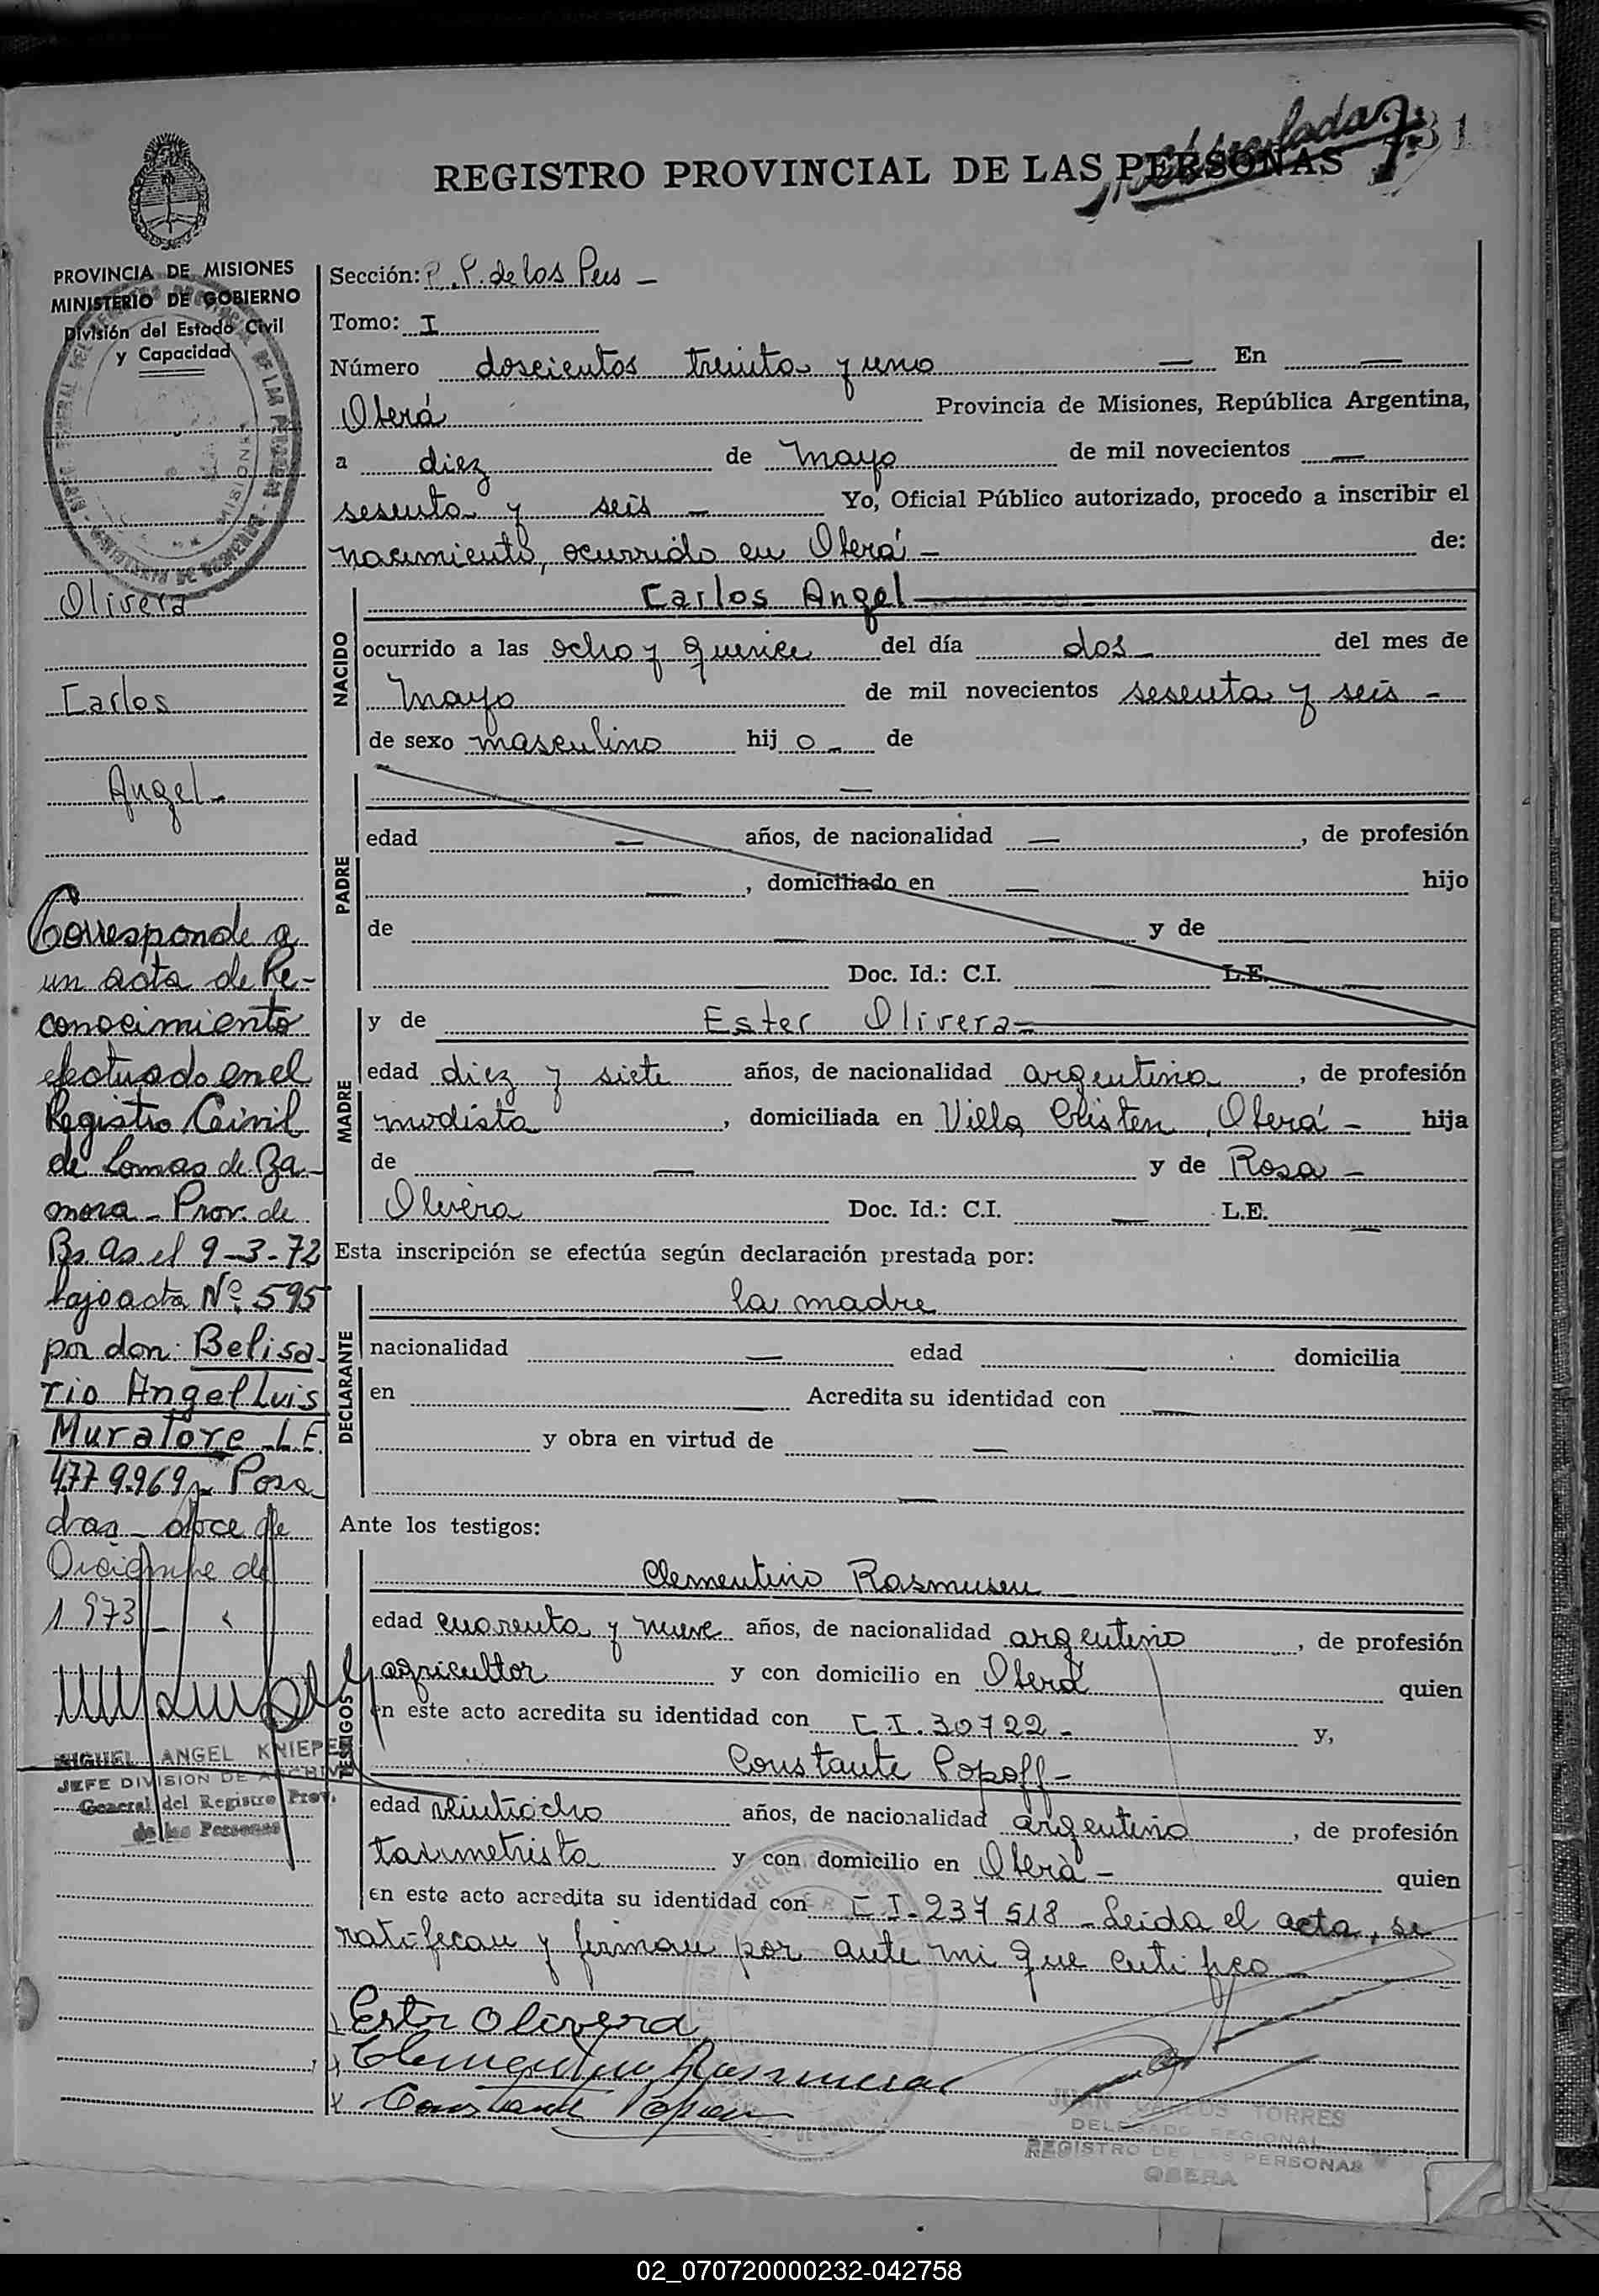 REGISTRO PROVINCIAL DE LAS PERSONAS
31
PROVINCIA DE MISIONES
MINISTERIO DE GOBIERNO
División del Estado Civil
y Capacidad
Olivera
Carlos
Angel-
Corresponde a
un acta de Re-
conocimiento
efectuado en el
Registro Civil
de Lomas de Za-
mora - Prov. de
Bs. As. el 9-3-72
bajo acta Nº 595
por don: Belisa-
rio Angel Luis
Muratore L.E.
4.779.969 Posa-
das - doce de
Diciembre de
1973 -
MIGUEL ANGEL KNIEPE
JEFE DIVISION DE ARCHIVO
General del Registro Prov.
de las Personas
Sección: P. P. de los Pers -
Tomo: I
Número doscientos treinta y uno — En —
Oberá Provincia de Misiones, República Argentina,
a diez de Mayo de mil novecientos —
sesenta y seis - Yo, Oficial Público autorizado, procedo a inscribir el
nacimiento, ocurrido en Oberá - de:
NACIDO
Carlos Angel
ocurrido a las ocho y quince del día dos - del mes de
Mayo de mil novecientos sesenta y seis -
de sexo masculino hij o - de
PADRE
—
edad — años, de nacionalidad —, de profesión
—, domiciliado en — hijo
de — — y de —
Doc. Id.: C.I. — L.E. —
MADRE
y de Ester Olivera
edad diez y siete años, de nacionalidad argentina, de profesión
modista, domiciliada en Villa Cristen, Oberá - hija
de — y de Rosa -
Olivera Doc. Id.: C.I. — L.E. —
Esta inscripción se efectúa según declaración prestada por:
DECLARANTE
la madre
nacionalidad — edad — domicilia
en — Acredita su identidad con —
y obra en virtud de —
—
Ante los testigos:
TESTIGOS
Clementino Rasmusen
edad cuarenta y nueve años, de nacionalidad argentino, de profesión
agricultor y con domicilio en Oberá quien
en este acto acredita su identidad con C.I. 30722 - y,
Constante Popoff -
edad veintiocho años, de nacionalidad argentino, de profesión
taximetrista y con domicilio en Oberá - quien
en este acto acredita su identidad con C.I. 237518 - Leida el acta, se
ratifican y firman por ante mi que certifico
Ester Olivera
JUAN CARLOS TORRES
DELEGADO REGIONAL
REGISTRO DE LAS PERSONAS
OBERA
02_070720000232-042758